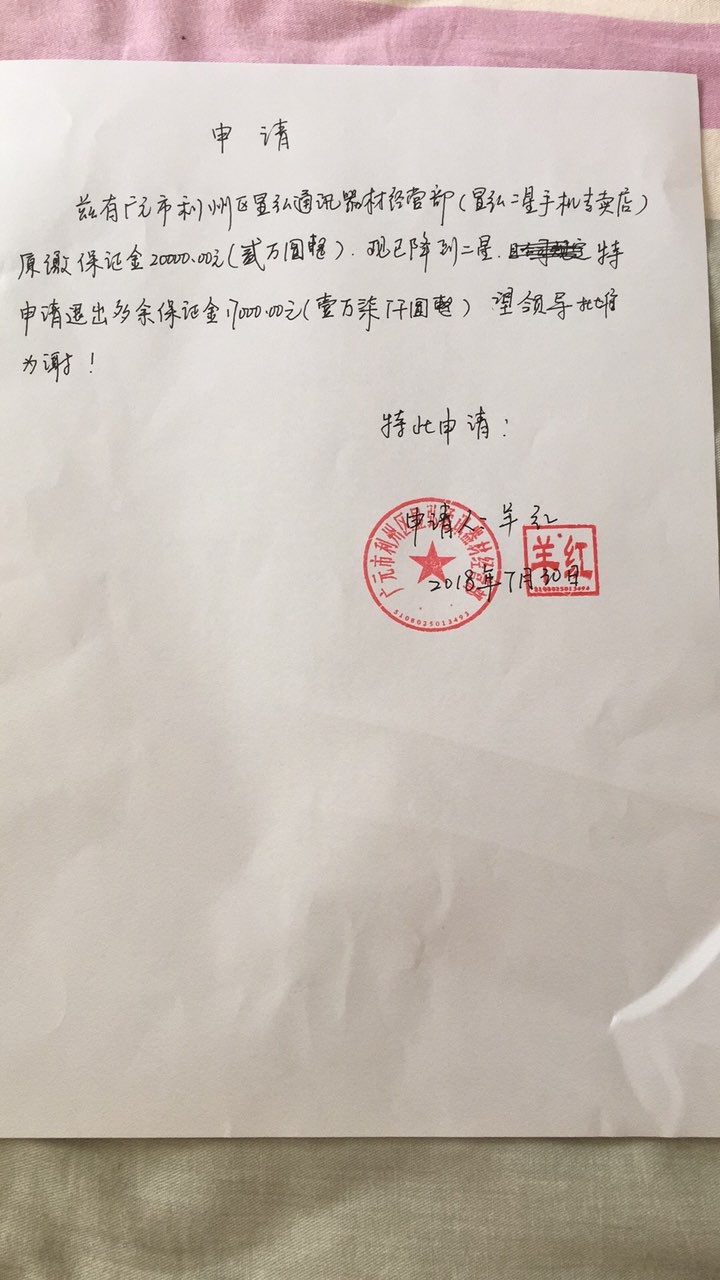 申 请
兹有广元市利州区星弘通讯器材经营部(星弘二星手机专卖店)
原缴保证金20000.00元(贰万圆整). 现已降到二星. 特
申请退出多余保证金17000.00元(壹万柒仟圆整) 望领导批准
为谢!
特此申请:
申请人: 羊红
2018年7月30日
广元市利州区星弘通讯器材经营部
5108025013493
羊红
5108025013494